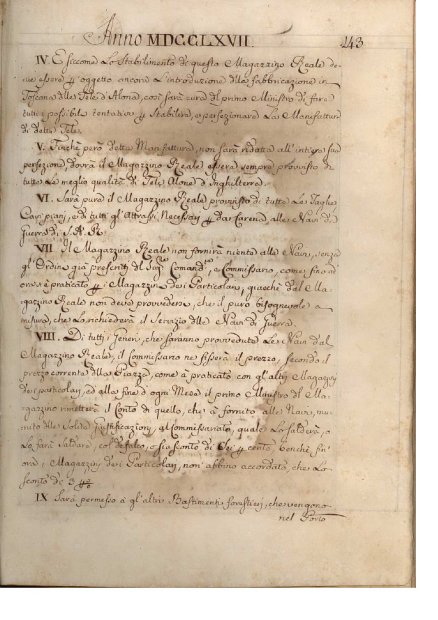 Anno MDCCLXVII. 143
IV. E siccome lo Stabilimento di questo Magazzino Reale de-
ve essere p oggetto ancora l'introduzione della fabbricazione in
Toscana delle Tele d'Alona, così sarà cura del primo Ministro di fare
tutti i possibili tentativi p stabilire, e perfezionare la Manifattura
di dette Tele.
V. Finchè però detta Manifattura, non sarà ridotta all'intiera sua
perfezione, dovrà il Magazzino Reale essere sempre provvisto di
tutte le meglio qualità di Tele Alone d'Inghilterra.
VI. Sarà pure il Magazzino Reale provvisto di tutte le Taglie
Cavi piani, e di tutti gl'Attrassi Necessarj p da Carena, alle Navi di
Guerra di S.A.R.
VII. Il Magazzino Reale non fornirà niente alle Navi, senza
gl'Ordini già prescritti del Sig.re Comand.te, e Commissario, come sino ad
ora si è praticato p i Magazzini dei Particolari, giacchè dal Ma-
gazzino Reale non deve provvedersi, che il puro bisognevole a
misura, che lo richiederà il Servizio delle Navi di Guerra.
VIII. Di tutti i Generi, che saranno provvedute le Navi dal
Magazzino Reale, il Commissario ne fisserà il prezzo, secondo il
prezzo corrente della Piazza, come è praticato con gl'altri Magazzini
dei particolari, ed alla fine d'ogni Mese il primo Ministro del Ma-
gazzino rimetterà il Conto di quello, che à fornito alle Navi, mu-
nito delle Solite Giustificazioni, al Commissariato, quale lo salderà, o
lo farà saldare, col defalco, o sia sconto di Tre p cento, benchè fin'
ora i Magazzini dei Particolari, non abbino accordato, che lo
sconto di 3
IX Sarà permesso a gl'altri Bastimenti forestieri, che vengono
nel Porto